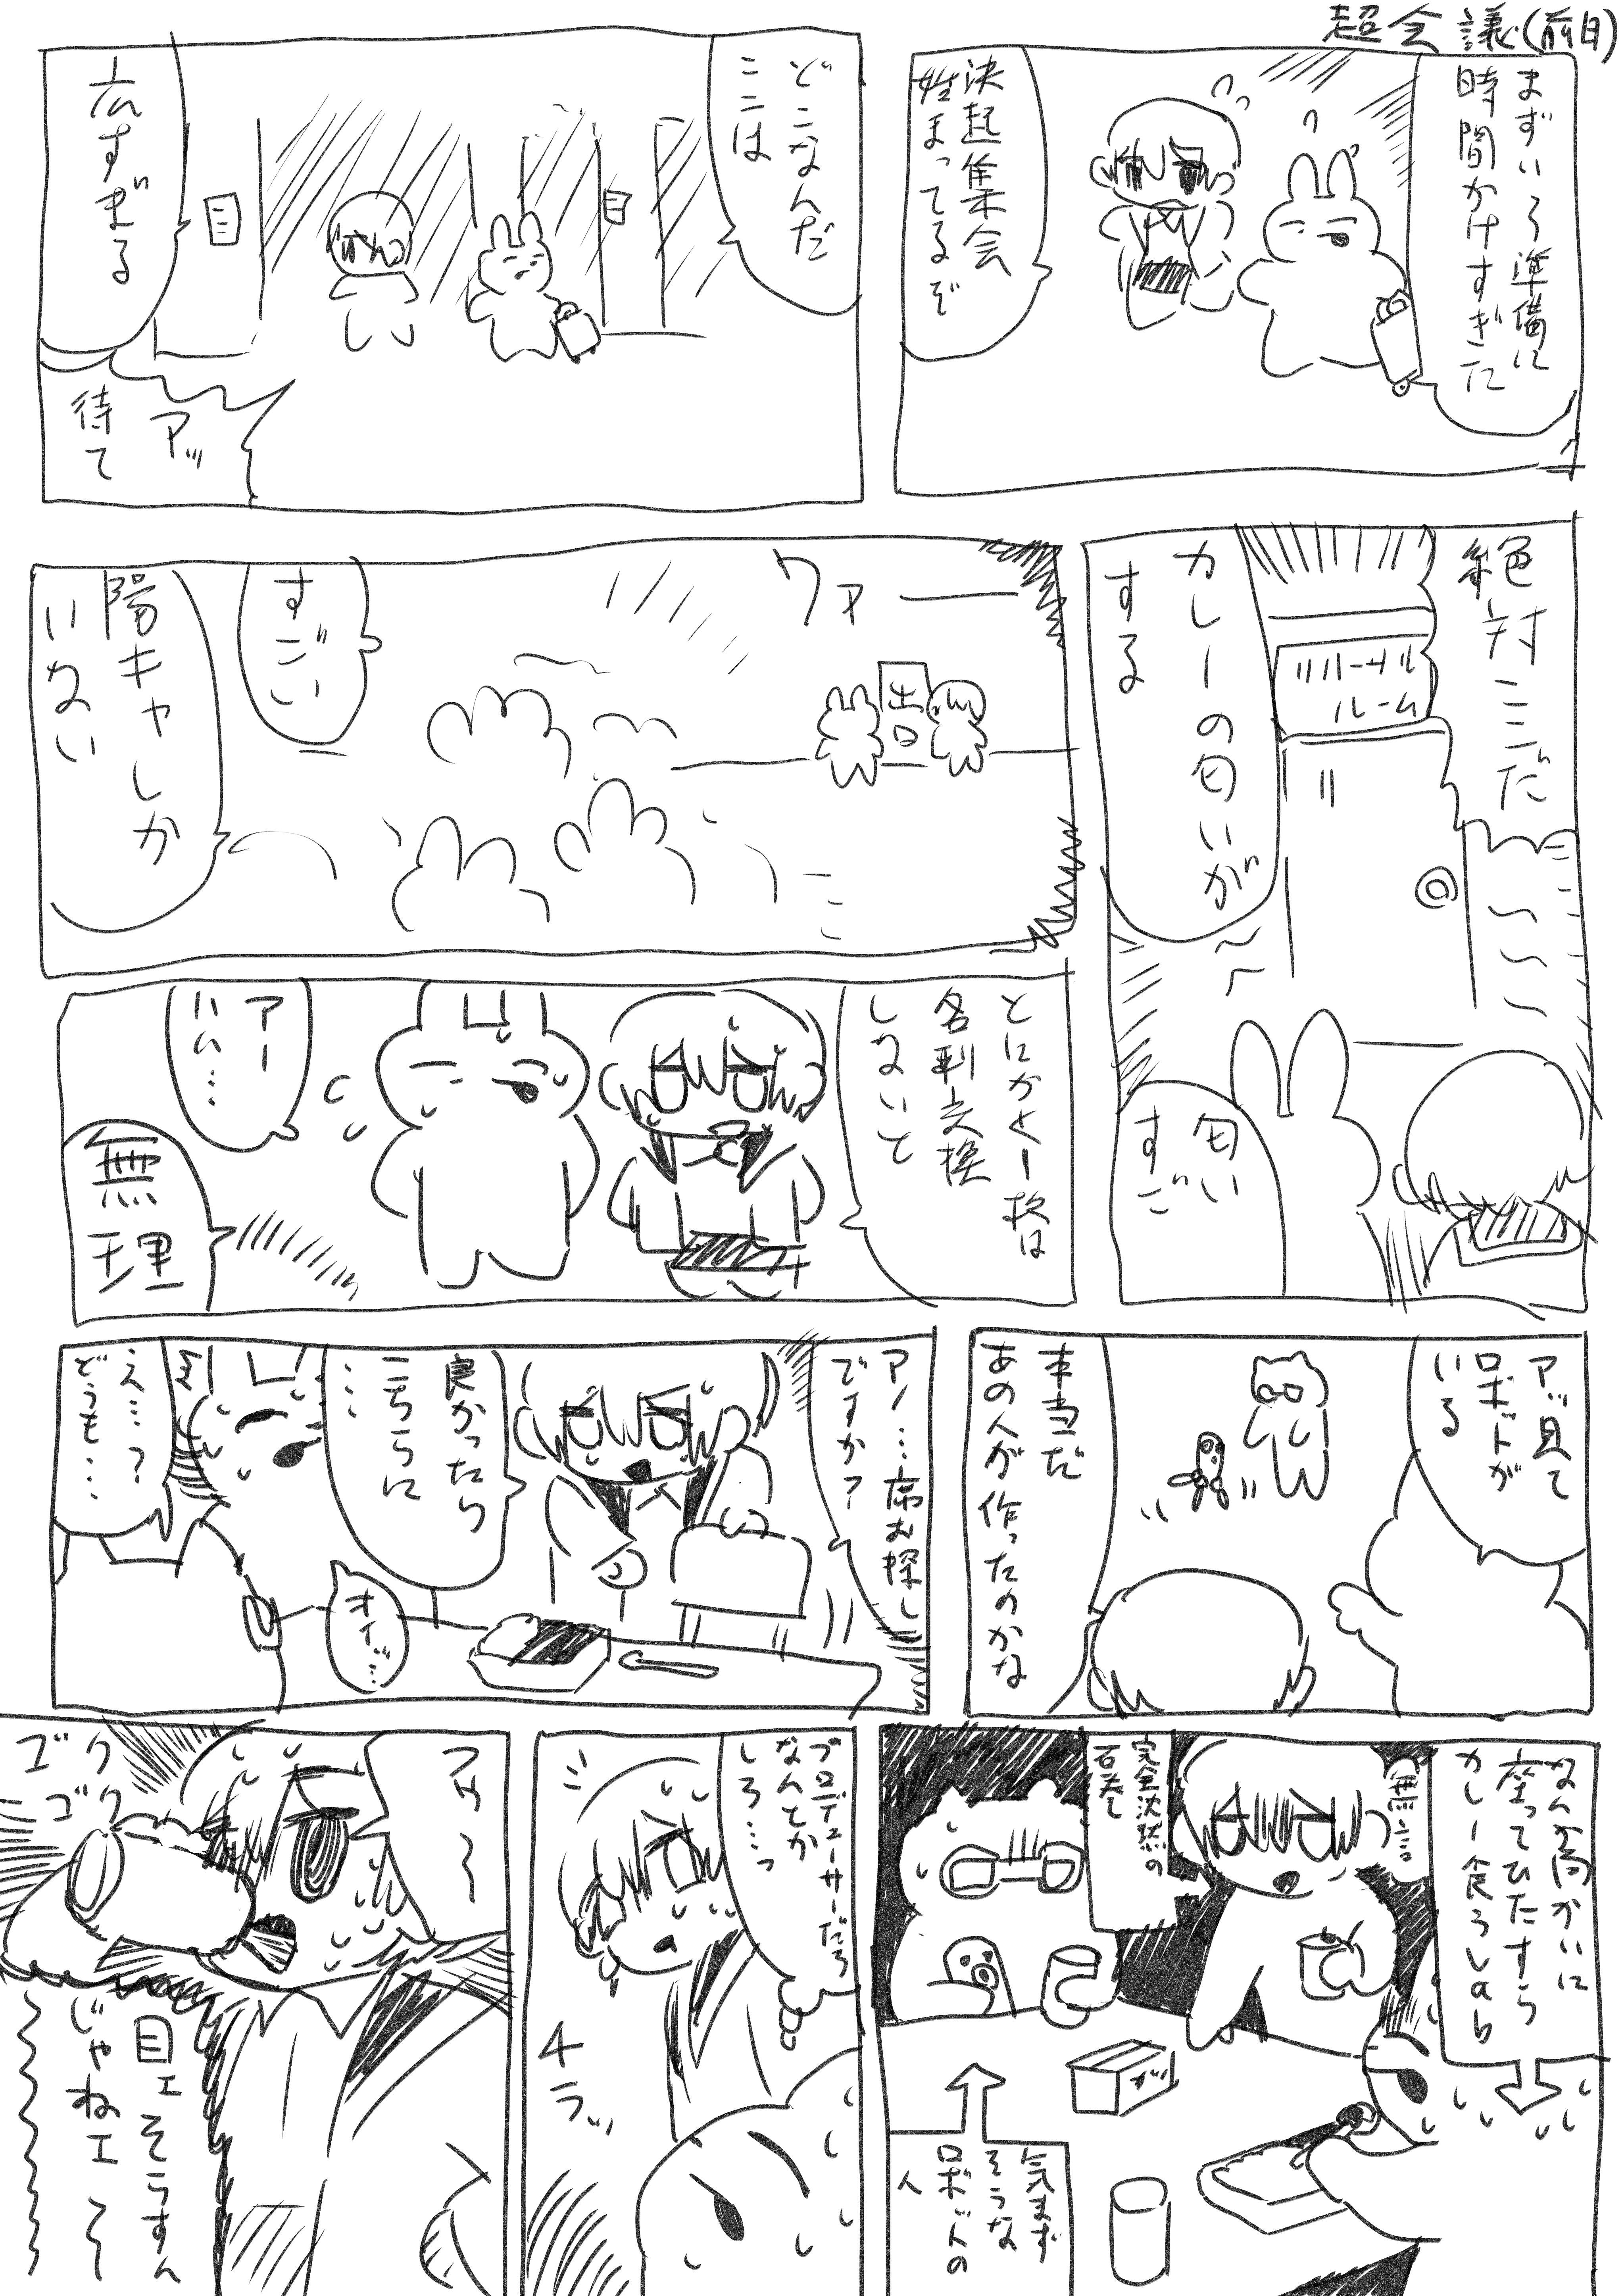 超会議(前日)
まずいろ準備に
時間かけすぎた
決起集会
始まってるぞ
どこなんだ
ここは
広すぎる
アッ
待て
絶対ここだ
リハーサル
ルーム
カレーの匂いが
する
匂い
すご
ワァー
出口
すごい
陽キャしか
いない
とにかく一枚は
名刺交換
しないと
アー
ハム…
無理
アッ見て
ロボットが
いる
本当だ
あの人が作ったのかな
アノ…席お探し
ですか?
良かったら
こちらに
……
え…?
どうも…
オイ…
なんか向かいに
座ってひたすら
カレー食うしのら
無言
完全沈黙の
石巻
気まず
そうな
ロボットの
人
プロデューサーだろ
なんとか
しろ…っ
チラッ
フゥ〜
ゴクゴク
目エそらすん
じゃねエ〜